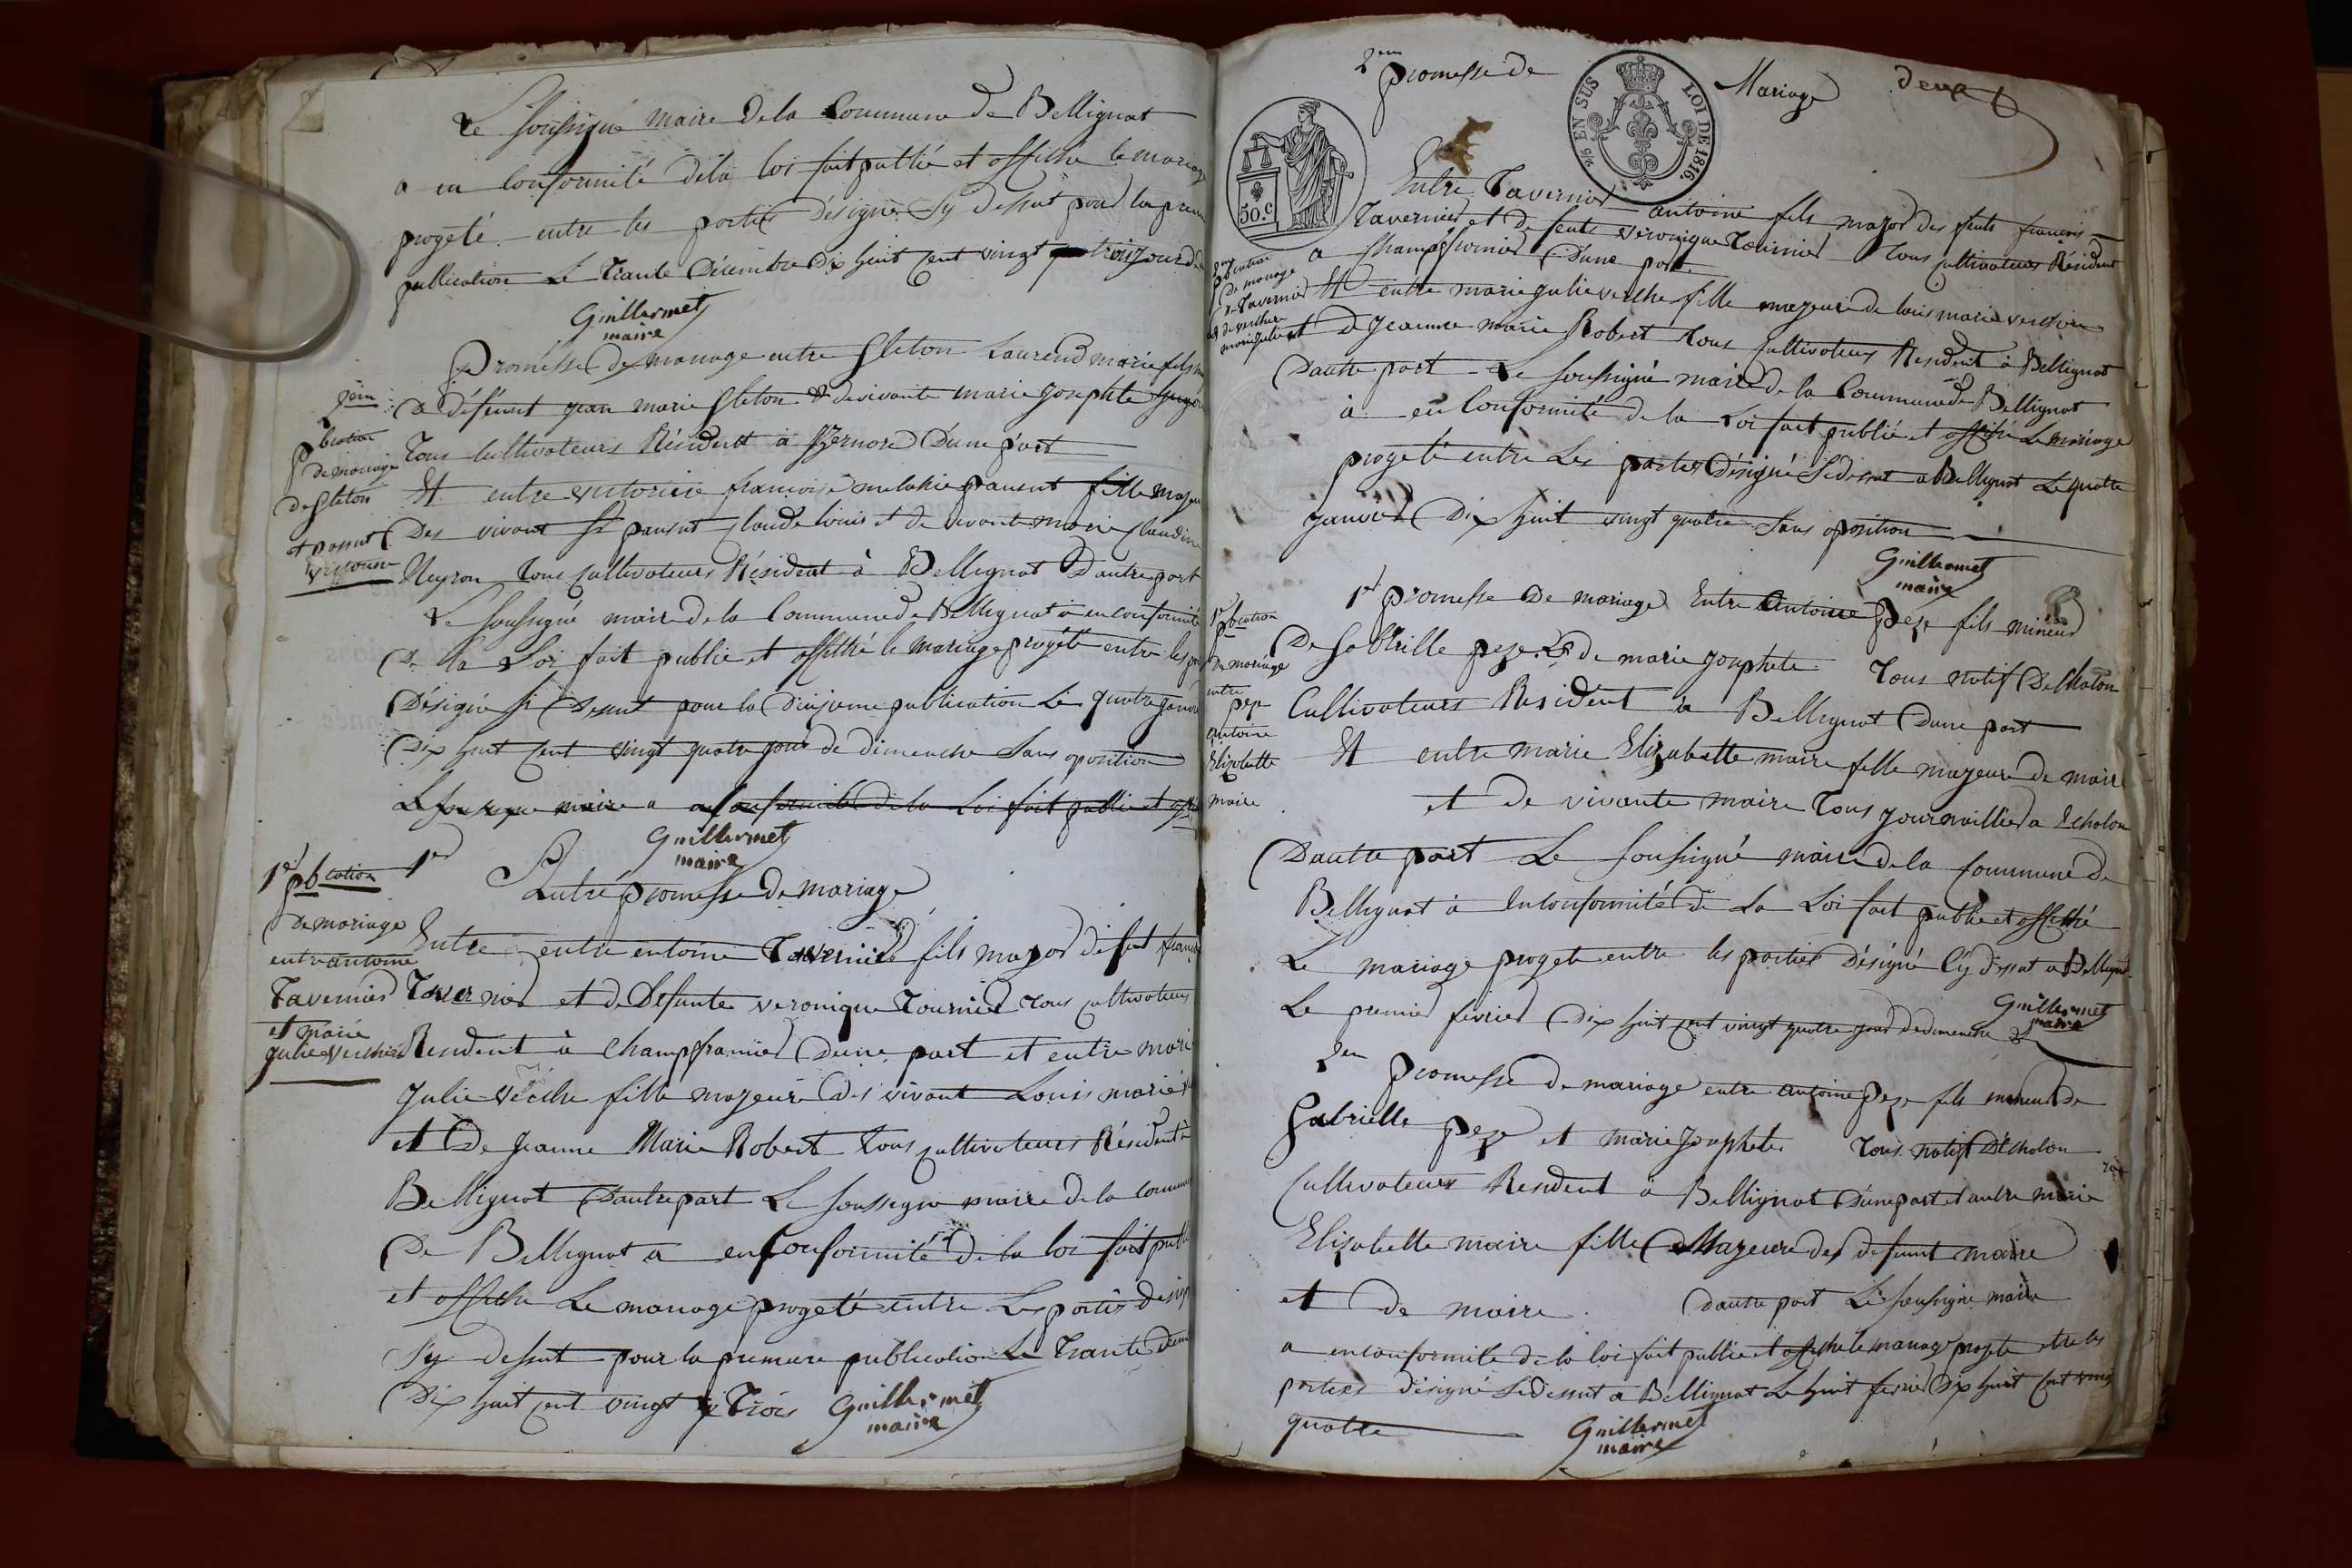 Le soussigné maire dela Commune de Bellignat
a en Conformité dela loi fait publié et affiché le mariage
progeté entre les parties désigné sy dessut pour la prem
publication Le Trante Décembre Dix huit cent vingt trois jour de
Guillermet
maire
2em
pbcation
de mariage
de
et pansut
victorine
Promesse de mariage entre Laurend marie fils
de défeunt jean marie & de vivante marie josephte
Tous Cultivateurs Résident à D'une part
Et entre victorine francoise melanie pansut fille majeu
Des vivant pansut Claude louis et de vivante marie Claudine
Neyron Tous Cultivateurs Résident à Bellignat D'autre part
Le soussigné maire de la Commune de Bellignat à en conformité
De la Loi fait publié et affiché le mariage progété entre les
Désigné si Desut pour la Deuxieme publication Le quatre janvie
Dix huit cent vingt quatre jour de dimenche Sans oposition
maire a conformité de la Loi fait publié et
Guillermet
maire
1er pbcation
de mariage
entre antoine
Tavernier
et marie
julie verchere
1er
Autre promesse de mariage
Entre entre entoine Tavernier fils major de feut francois
Tavernier et de Defunte veronique Tournier Tous cultivateurs
Resident à Champfromier D'une part et entre marie
julie fille majeure Des vivant Louis marie
et De jeanne Marie Robert Tous cultivateurs Résident à
Bellignat D'autre part Le soussigné maire de la commune
De Bellignat a en Conformité de la loi fait publ
et affiché Le mariage progeté entre Les partis desig
sy dessut pour la premiere publication Le Trante
Dix huit cent vingt trois
Guillermet
maire
2em promesse de Mariage
deux
2/5 EN SUS
LOI DE 1816.
50.c
2em
pbcation
de mariage
de Tavernier
et de verchere
marie julie
Entre Tavernier antoine fils major des feuts francois
Tavernier et De feute veronique Tournier Tous cultivateurs Résident
a Champfromier D'une part
Et entre marie julie verchere fille majeure de louis marie verchere
et de jeanne marie Robert Tous Cultivateurs Resident à Bellignat
Dautre part Le soussigné maire de la Commune de Bellignat
à en Conformité de la Loi fait publié et affiché Le mariage
progeté entre Les parties Désigné Sidesut a Bellignat Le quatre
janvier Dix huit vingt quatre Sans oposition
Guillermet
maire
1er pbcation
de mariage
entre
peze
antoine
Elizabette
maire
1er promesse de mariage Entre Antoine peze fils mineur
De Gabrille peze & de marie josephete Tous natif Dechalon
Cultivateurs Resident à Bellignat D'une part
Et entre marie Elizabette maire fille majeure de maire
et de vivante maire Tous journallier a Echalon
Dautre part Le soussigné maire de la Commune de
Bellignat à En conformité De La Loi fait publié et affiché
Le mariage progeté entre les parties Désigné Cy dessut a Bellignat
Le premier fevrier Dix huit cent vingt quatre jour dedimenche
Guillermet
maire
2em promesse de mariage entre antoine peze fils mineur de
Gabrielle peze et marie josephete Tous natif D'Echalon
Cultivateurs Resident à Bellignat D'une part et autre marie
Elizabette maire fille Majeure des defeunt maire
et De maire Dautre part Le soussigné maire
a en conformité de la loi fait publié et affiché le mariage progeté entre les
parties désigné Sidessut a Bellignat Le huit fevrier Dix huit cent vingt
quatre
Guillermet
maire